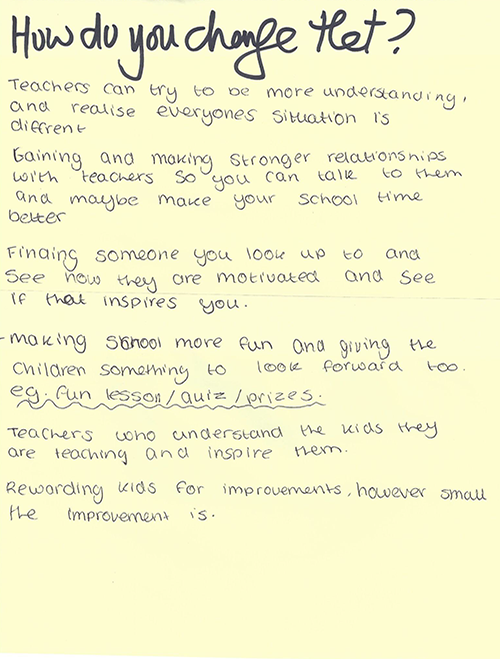 How do you change that?
Teachers can try to be more understanding,
and realise everyones situation is
diffrent
Gaining and making stronger relationships
with teachers so you can talk to them
and maybe make your school time
better
Finding someone you look up to and
see how they are motivated and see
if that inspires you.
-making school more fun and giving the
children something to look forward too.
eg. fun lesson/quiz/prizes.
Teachers who understand the kids they
are teaching and inspire them.
Rewarding kids for improvements, however small
the improvement is.